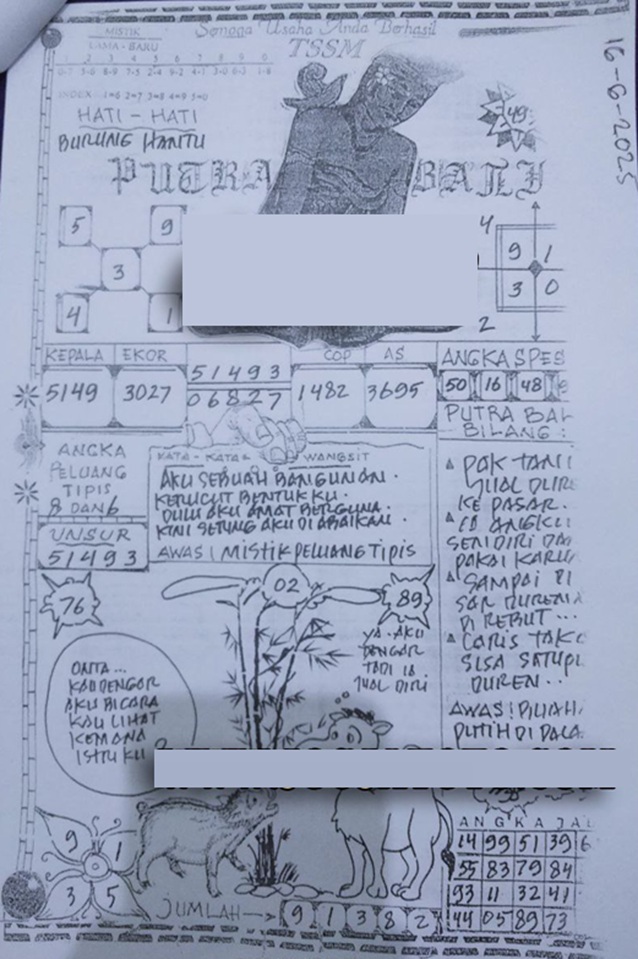 MISTIK
LAMA - BARU
Semoga Usaha Anda Berhasil
TSSM
1 2 3 4 5 6 7 8 9 0
INDEX: 1=6 2=7 3=8 4=9 5=0
HATI - HATI
BURUNG HANTU
49
16-6-2025
PUTRA BALI
5 9
3
4 1
4
9 1
3 0
2
KEPALA EKOR
5149 3027
51493
06827
COP AS
1482 3695
ANGKA SPES
50 16 48
PUTRA BAL
BILANG :
ANGKA
PELUANG
TIPIS
8 DAN 6
UNSUR
51493
KATA - KATA WANGSIT
AKU SEBUAH BANGUNAN.
KERUCUT BENTUKKU.
DULU AKU AMAT BERGUNA.
KINI SERING AKU DI ABAIKAN.
AWAS! MISTIK PELUANG TIPIS
PAK TANI
JUAL DURE
KE PASAR.
IA ANGKU
SENDIRI DAN
PAKAI KARU
SAMPAI DI
SAR DUREN
DI REBUT...
CORIS TAK
SISA SATUPU
DUREN...
AWAS! BUAH
PUTIH DI PALA
76
02
89
YA. AKU
DENGAR
TADI IA
JUAL DIRI
ONTA...
KAU DENGAR
AKU BICARA
KAU LIHAT
KEMANA
ISTRIKU
9 1
3 5
JUMLAH → 9 1 3 8 2
ANGKA JA
14 99 51 39 6
55 83 79 84
93 11 32 41
44 05 89 73